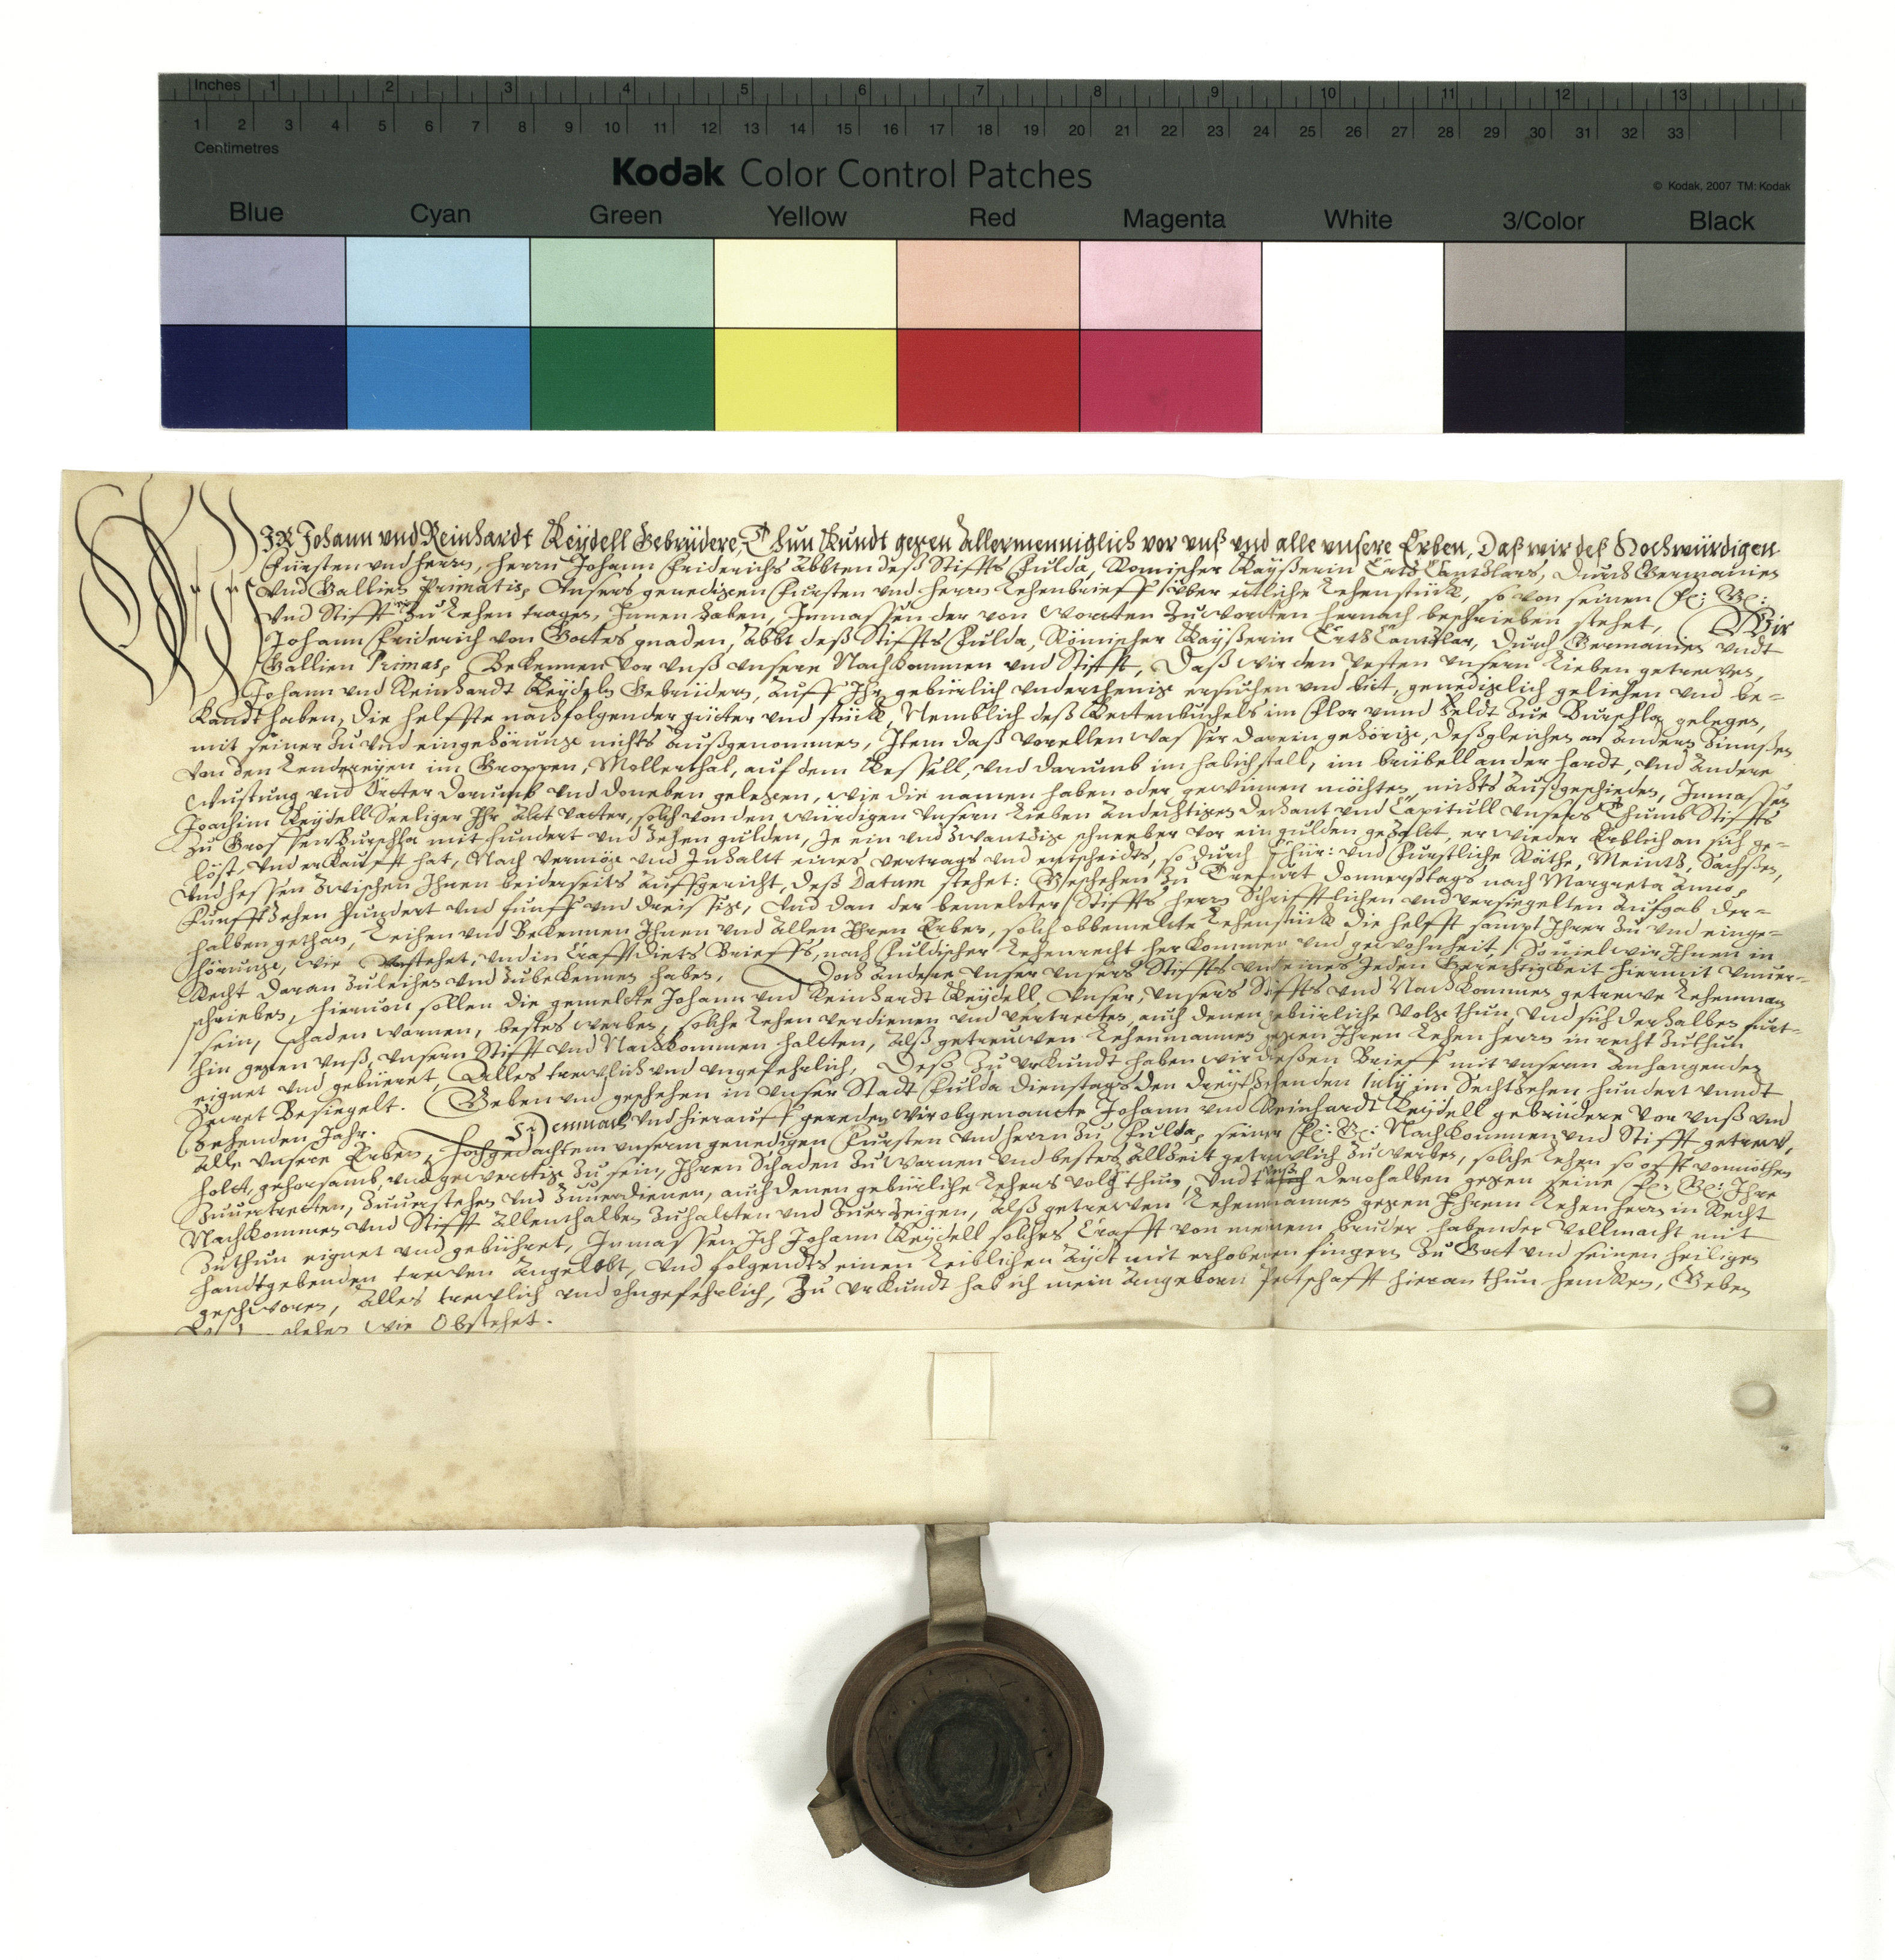 Inches 1 2 3 4 5 6 7 8 9 10 11 12 13
1 2 3 4 5 6 7 8 9 10 11 12 13 14 15 16 17 18 19 20 21 22 23 24 25 26 27 28 29 30 31 32 33
Centimetres
Kodak Color Control Patches
© Kodak, 2007 TM: Kodak
Blue Cyan Green Yellow Red Magenta White 3/Color Black
WIR Johann vnd Reinhardt Keÿdell Gebrüdere, Thun Kundt gegen Allermenniglich vor vnß vnd alle vnsere Erben, Daß wir deß Hochwürdigen
Fürsten vnd herrn, herrn Johann Friderichs Abbten deß Stiffts Fulda, Romischer Kaÿßerin Ertz Cantzlars, durch Germanien
vnd Gallien Primatis, Vnsers genedigen Fursten vnd herrn Lehenbrieff vber etliche Lehenstück, so von seinen F: G:
vnd Stifft zu Lehen tragen, Innen haben, Inmassen der von worten zu worten hernach beschrieben stehet, Wir
Johann Friderich von Gottes gnaden, Abbt deß Stiffts Fulda, Römischer Kaÿßerin Ertz Cantzlar, durch Germanien vndt
Gallien Primas, Bekennen vor vnß vnsere Nachkommen vnd Stifft, Daß wir den vesten vnsern Lieben getrewen,
Johann vnd Reinhardt Keÿdeln Gebrüdern, Auff Ihr gebürlich vnderthenig ersuchen vnd bit, genediglich geliehen vnd be=
kandt haben, die helffte nachfolgender gütter vnd stück, Nemblich deß Kertenbüchels im Flor vnnd Feldt zue Burschla gelegen,
mit seiner zu vnd eingehörung nichts Außgenommen, Item daß vorellen wasser darein gehörig, deßgleichen an Andern Zinnßen
von den Lendereÿen im Groppen, Mollerthal, auf dem Kessell, vnd darumb im habichstall, im brübell an der hardt, vnd Andere
Wustung vnd Örtter Darumb vnd doneben gelegen, wie die namen haben oder gewinnen möchten, nichts Außgeschieden, Inmassen
Joachim Keÿdell Seeliger Ihr Alt vatter, solch von den würdigen vnsern Lieben Andechtigen dechant vnd Capitull vnsers Thumb Stiffts
zu Grossen Burschla mit hundert vnd zehen gulden, Je ein vnd zwantzig schneeber vor ein gulden gezalt, er wieder Erblich an sich ge=
löst, vnd erkaufft hat, Nach vermöge vnd Inhallt eines vertrags vnd entscheidts, so durch Chür: vnd Fürstliche Räthe, Meintz, Sachßen,
vnd hessen zwischen Ihnen beiderseits Auffgericht, deß Datum stehet: Geschehen zu Trefurt donnerßtags nach Margreta Anno,
Funffzehen hundert vnd funff vnd dreissig, Vnd dan der bemelter Stiffts herrn Schrifftlichen vnd versiegelten Aufgab der=
halben gethan, Leihen vnd Bekennen Ihnen vnd Allen Ihren Erben, solch obbemelte Lehenstück die helfft sampt Ihrer zu vnd einge=
hörung, wie stehet, vnd in Crafft diets Brieffs, nach Fuldischer Lehenrecht herkommen vnd gewohnheit, Souiel wir Ihnen in
Recht daran zuleihen vnd zubekennen haben, Doch Andere vnser vnsers Stiffts vnd eines Jeden Gerechtigkeit hiermit vnuer=
schrieben, hieruon sollen die gemelte Johann vnd Reinhardt Keÿdell, Vnser, vnsers Stiffts vnd Nachkommen getrewe Lehenman
sein, schaden warnen, bestes werben, solche Lehen verdienen vnd vertretten, auch denen gebürliche Volge thun, vnd sich derhalben furt=
hin gegen vnß, vnsern Stifft vnd Nachkommen hallten, Alß getrewen Lehenmannen gegen Ihren Lehen herrn in recht zuthun
eignet vnd gebüeret, Alles trewlich vnd vngefehrlich, Deß zu vrkundt haben wir dießen Brieff mit vnserm Anhangenden
Secret Besiegelt. Geben vnd geschehen in vnser Stadt Fulda dienstags den dreÿtzehenden Julÿ im Sechtzehen hundert vnndt
zehenden Jahr. Demnach vnd hierauff gereden wir obgenante Johann vnd Reinhardt Keÿdell gebrüdere vor vnß vnd
Alle vnsere Erben, hochgedachtem vnserm genedigen Fürsten vnd herrn zu Fulda, seiner F: G: Nachkommen vnd Stifft getrew,
holt, gehorsamb, vnd gewertig zu sein, Ihren Schaden zu warnen vnd bestes Allzeit getrewlich zu werben, solche Lehen so offt vonnöthen
zuuertretten, zuuerstehen vnd zuuerdienen, auch denen gebürliche Lehens volg thun, vndt vnß derohalben gegen seine F: G: Ihre
Nachkommen vnd Stifft Allenthalben zuhallten vnd zuerzeigen, Alß getrewen Lehenmannen gegen Ihrem Lehen herrn in Recht
zuthun eignet vnd gebühret, Inmassen Ich Johann Keÿdell solches Crafft von meinem bruder habender vollmacht mit
handtgebenden trewen Angelobt, vnd folgendts einen Leiblichen Aÿdt mit erhobenen fingern zu Gott vnd seinen heiligen
geschworen, Alles trewlich vnd ohngefehrlich, Zu vrkundt hab ich mein Angeborn Petschafft hieran thun hencken, Geben
wie Obstehet.